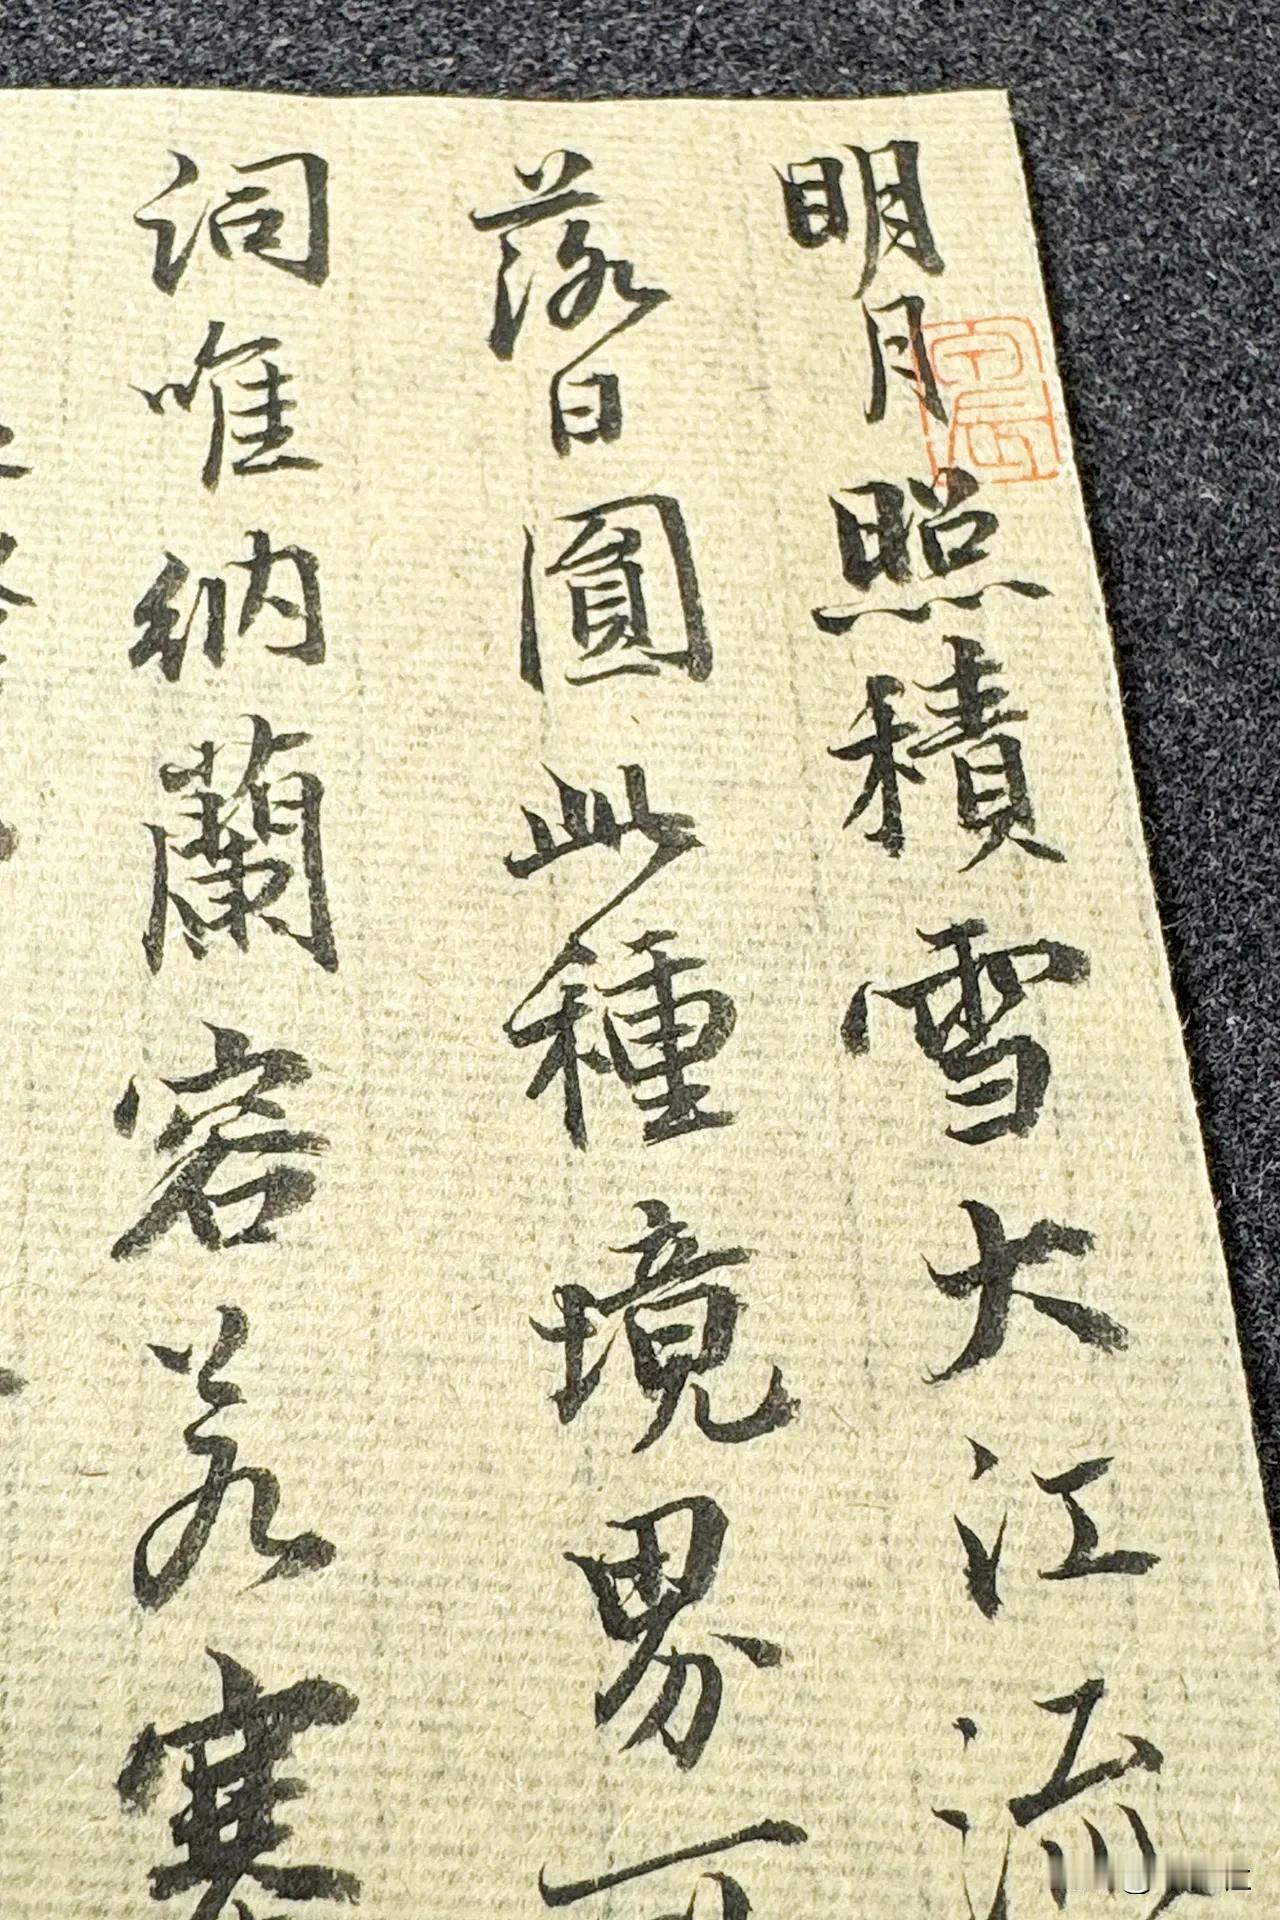 明月照積雪大江流
落日圓此種境界可
詞唯納蘭容若塞